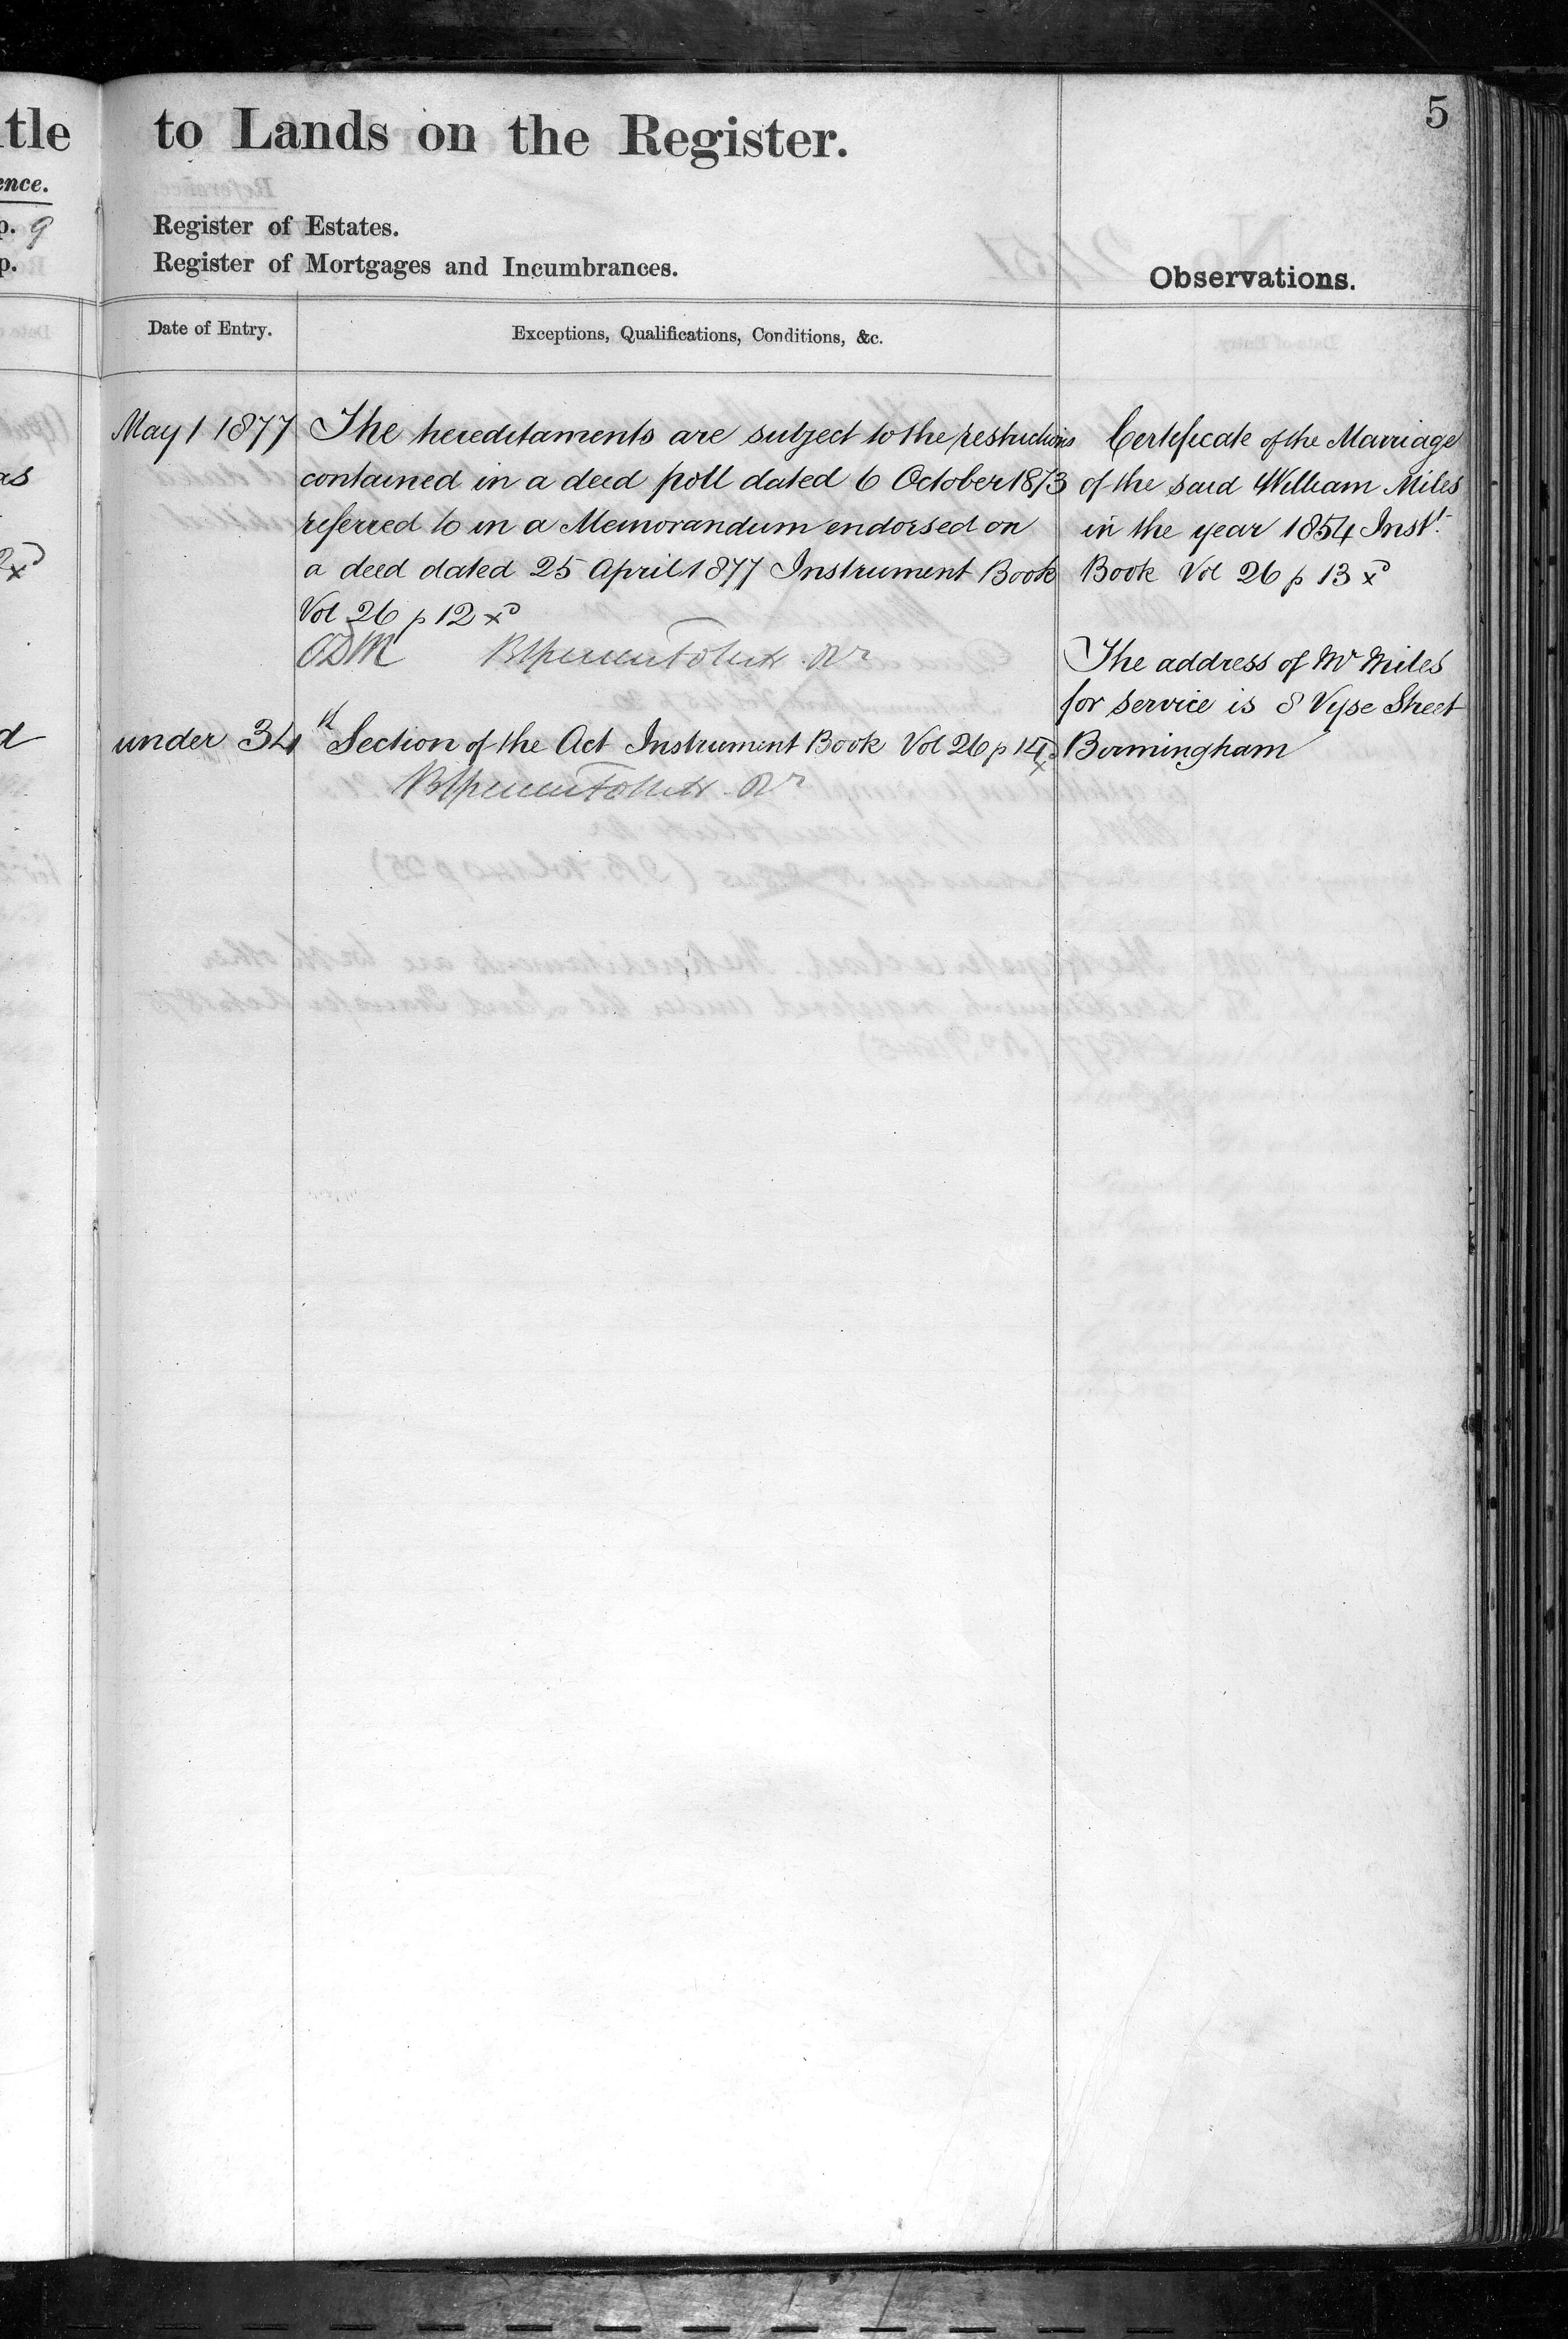 5
tle to Lands on the Register.
ence.
p. 9 Register of Estates.
p. Register of Mortgages and Incumbrances.
Observations.
Date of Entry.
Exceptions, Qualifications, Conditions, &c.
May 1 1877 The hereditaments are subject to the restrictions
contained in a deed poll dated 6 October 1873
referred to in a Memorandum endorsed on
a deed dated 25 April 1877 Instrument Book
Vol 26 p 12 xd
as
d under 34th Section of the Act Instrument Book Vol 26 p 14 xd
Certificate of the Marriage
of the said William Miles
in the year 1854 Instt.
Book Vol 26 p 13 xd
The address of Mr Miles
for service is 8 Vyse Street
Birmingham